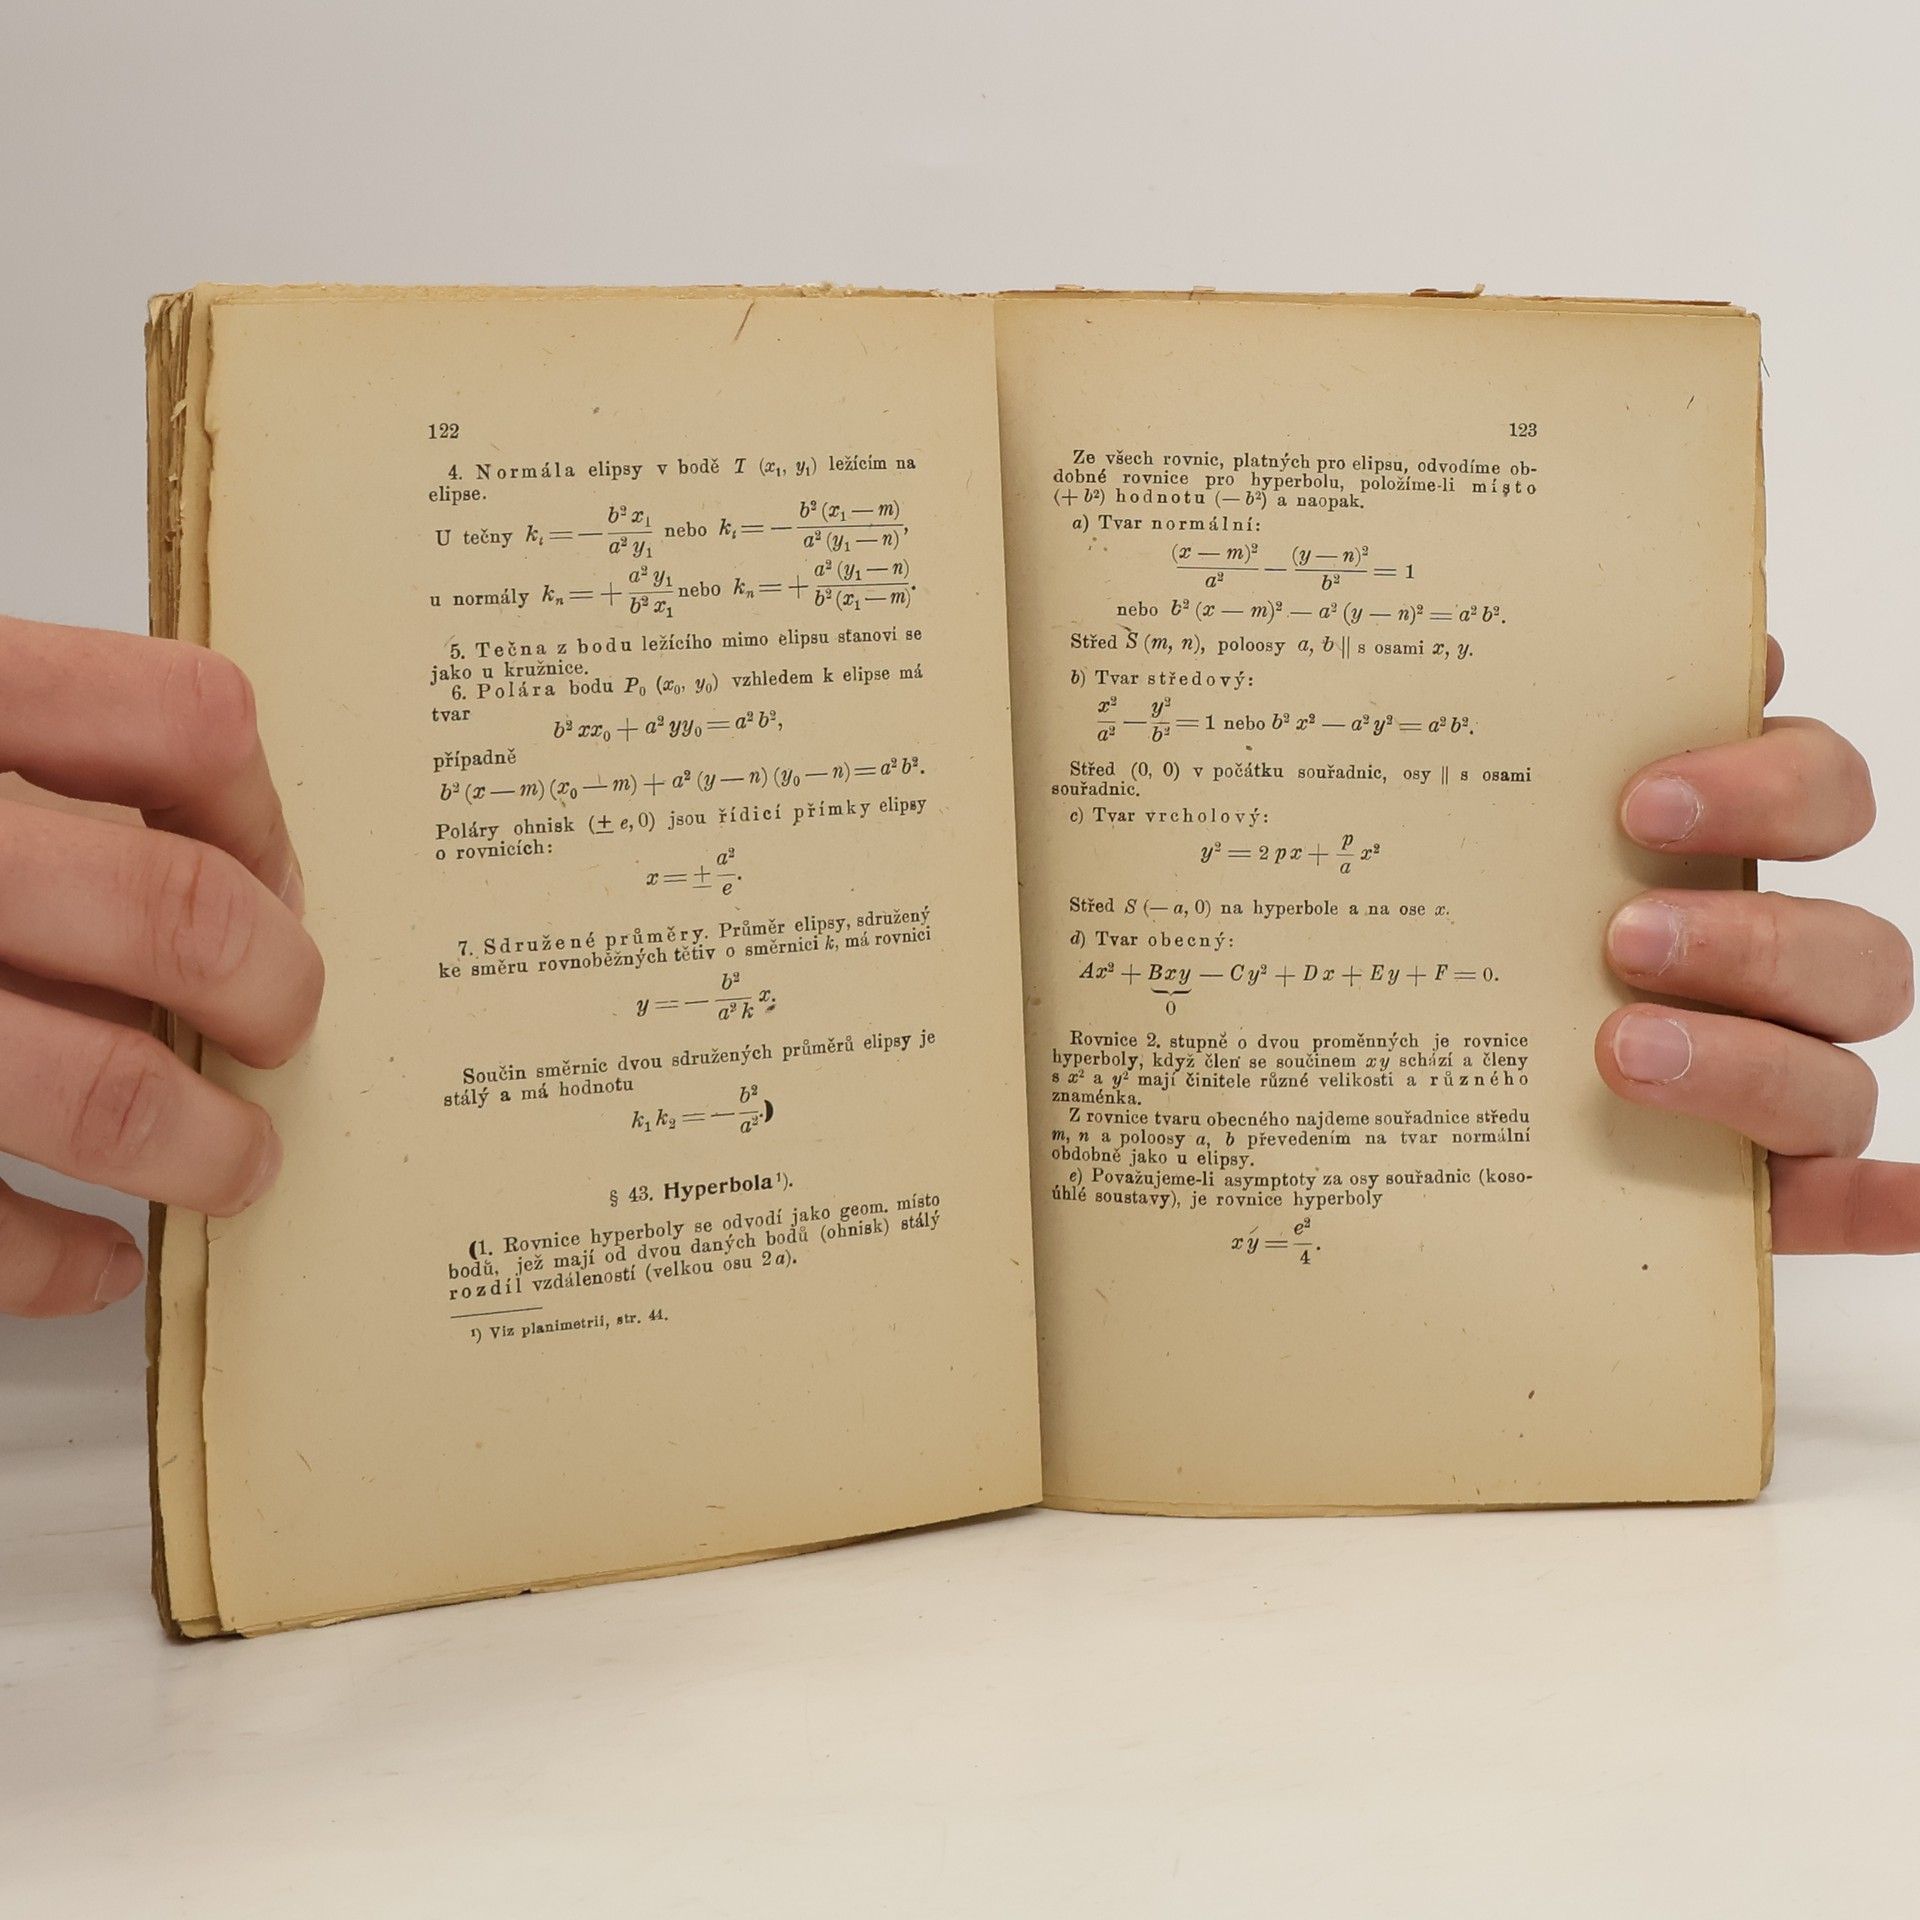 122
4. Normála elipsy v bodě T (x₁, y₁) ležícím na
elipse.
U tečny kₜ = — b² x₁ / a² y₁ nebo kₜ = — b² (x₁ — m) / a² (y₁ — n),
u normály kₙ = + a² y₁ / b² x₁ nebo kₙ = + a² (y₁ — n) / b² (x₁ — m).
5. Tečna z bodu ležícího mimo elipsu stanoví se
jako u kružnice.
6. Polára bodu P₀ (x₀, y₀) vzhledem k elipse má
tvar
b² xx₀ + a² yy₀ = a² b²,
případně
b² (x — m) (x₀ — m) + a² (y — n) (y₀ — n) = a² b².
Poláry ohnisk (± e, 0) jsou řídicí přímky elipsy
o rovnicích:
x = ± a² / e.
7. Sdružené průměry. Průměr elipsy, sdružený
ke směru rovnoběžných tětiv o směrnici k, má rovnici
y = — b² / a² k x.
Součin směrnic dvou sdružených průměrů elipsy je
stálý a má hodnotu
k₁ k₂ = — b² / a².)
§ 43. Hyperbola¹).
(1. Rovnice hyperboly se odvodí jako geom. místo
bodů, jež mají od dvou daných bodů (ohnisk) stálý
rozdíl vzdáleností (velkou osu 2 a).
¹) Viz planimetrii, str. 44.
123
Ze všech rovnic, platných pro elipsu, odvodíme ob-
dobné rovnice pro hyperbolu, položíme-li místo
(+ b²) hodnotu (— b²) a naopak.
a) Tvar normální:
(x — m)² / a² — (y — n)² / b² = 1
nebo b² (x — m)² — a² (y — n)² = a² b².
Střed S (m, n), poloosy a, b || s osami x, y.
b) Tvar středový:
x² / a² — y² / b² = 1 nebo b² x² — a² y² = a² b².
Střed (0, 0) v počátku souřadnic, osy || s osami
souřadnic.
c) Tvar vrcholový:
y² = 2 px + p / a x²
Střed S (— a, 0) na hyperbole a na ose x.
d) Tvar obecný:
Ax² + Bxy — Cy² + Dx + Ey + F = 0.
0
Rovnice 2. stupně o dvou proměnných je rovnice
hyperboly, když člen se součinem xy schází a členy
s x² a y² mají činitele různé velikosti a různého
znaménka.
Z rovnice tvaru obecného najdeme souřadnice středu
m, n a poloosy a, b převedením na tvar normální
obdobně jako u elipsy.
e) Považujeme-li asymptoty za osy souřadnic (koso-
úhlé soustavy), je rovnice hyperboly
xy = e² / 4.